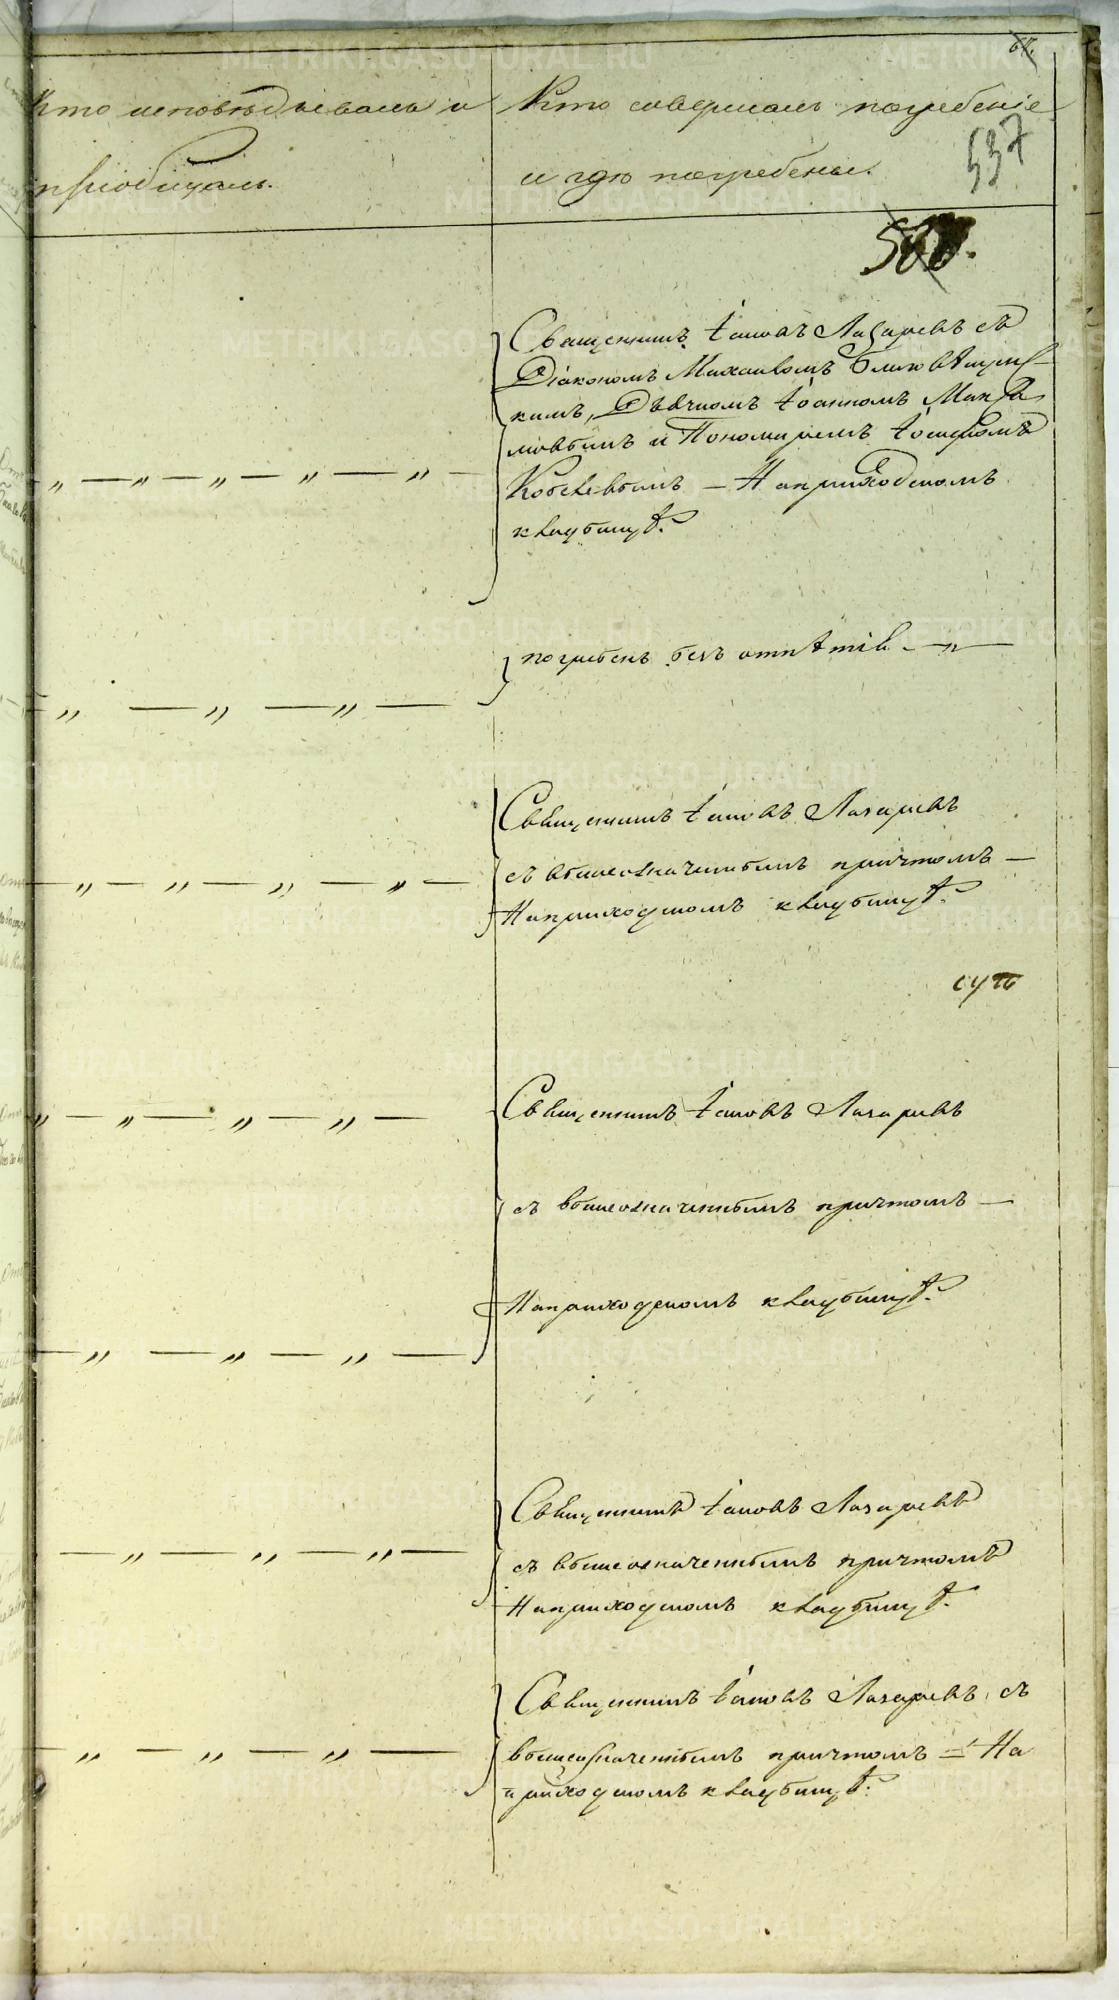 67.
Кто исповѣдывалъ и
пріобщалъ.
Кто совершалъ погребеніе
и гдѣ погребены.
537
500.
Священникъ Іаковъ Лазаревъ съ
Діакономъ Михаиломъ
кимъ, Дьячкомъ Іоанномъ
и Пономаремъ Іосифомъ
— На приходскомъ
кладбищѣ.
погребенъ безъ отпѣтія —〃—
Священникъ Іаковъ Лазаревъ
съ вышеозначеннымъ причтомъ —
На приходскомъ кладбищѣ.
Священникъ Іаковъ Лазаревъ
съ вышеозначеннымъ причтомъ —
На приходскомъ кладбищѣ.
Священникъ Іаковъ Лазаревъ
съ вышеозначеннымъ причтомъ
На приходскомъ кладбищѣ.
Священникъ Іаковъ Лазаревъ съ
вышеозначеннымъ причтомъ — На
приходскомъ кладбищѣ.
METRIKI.GASO-URAL.RU